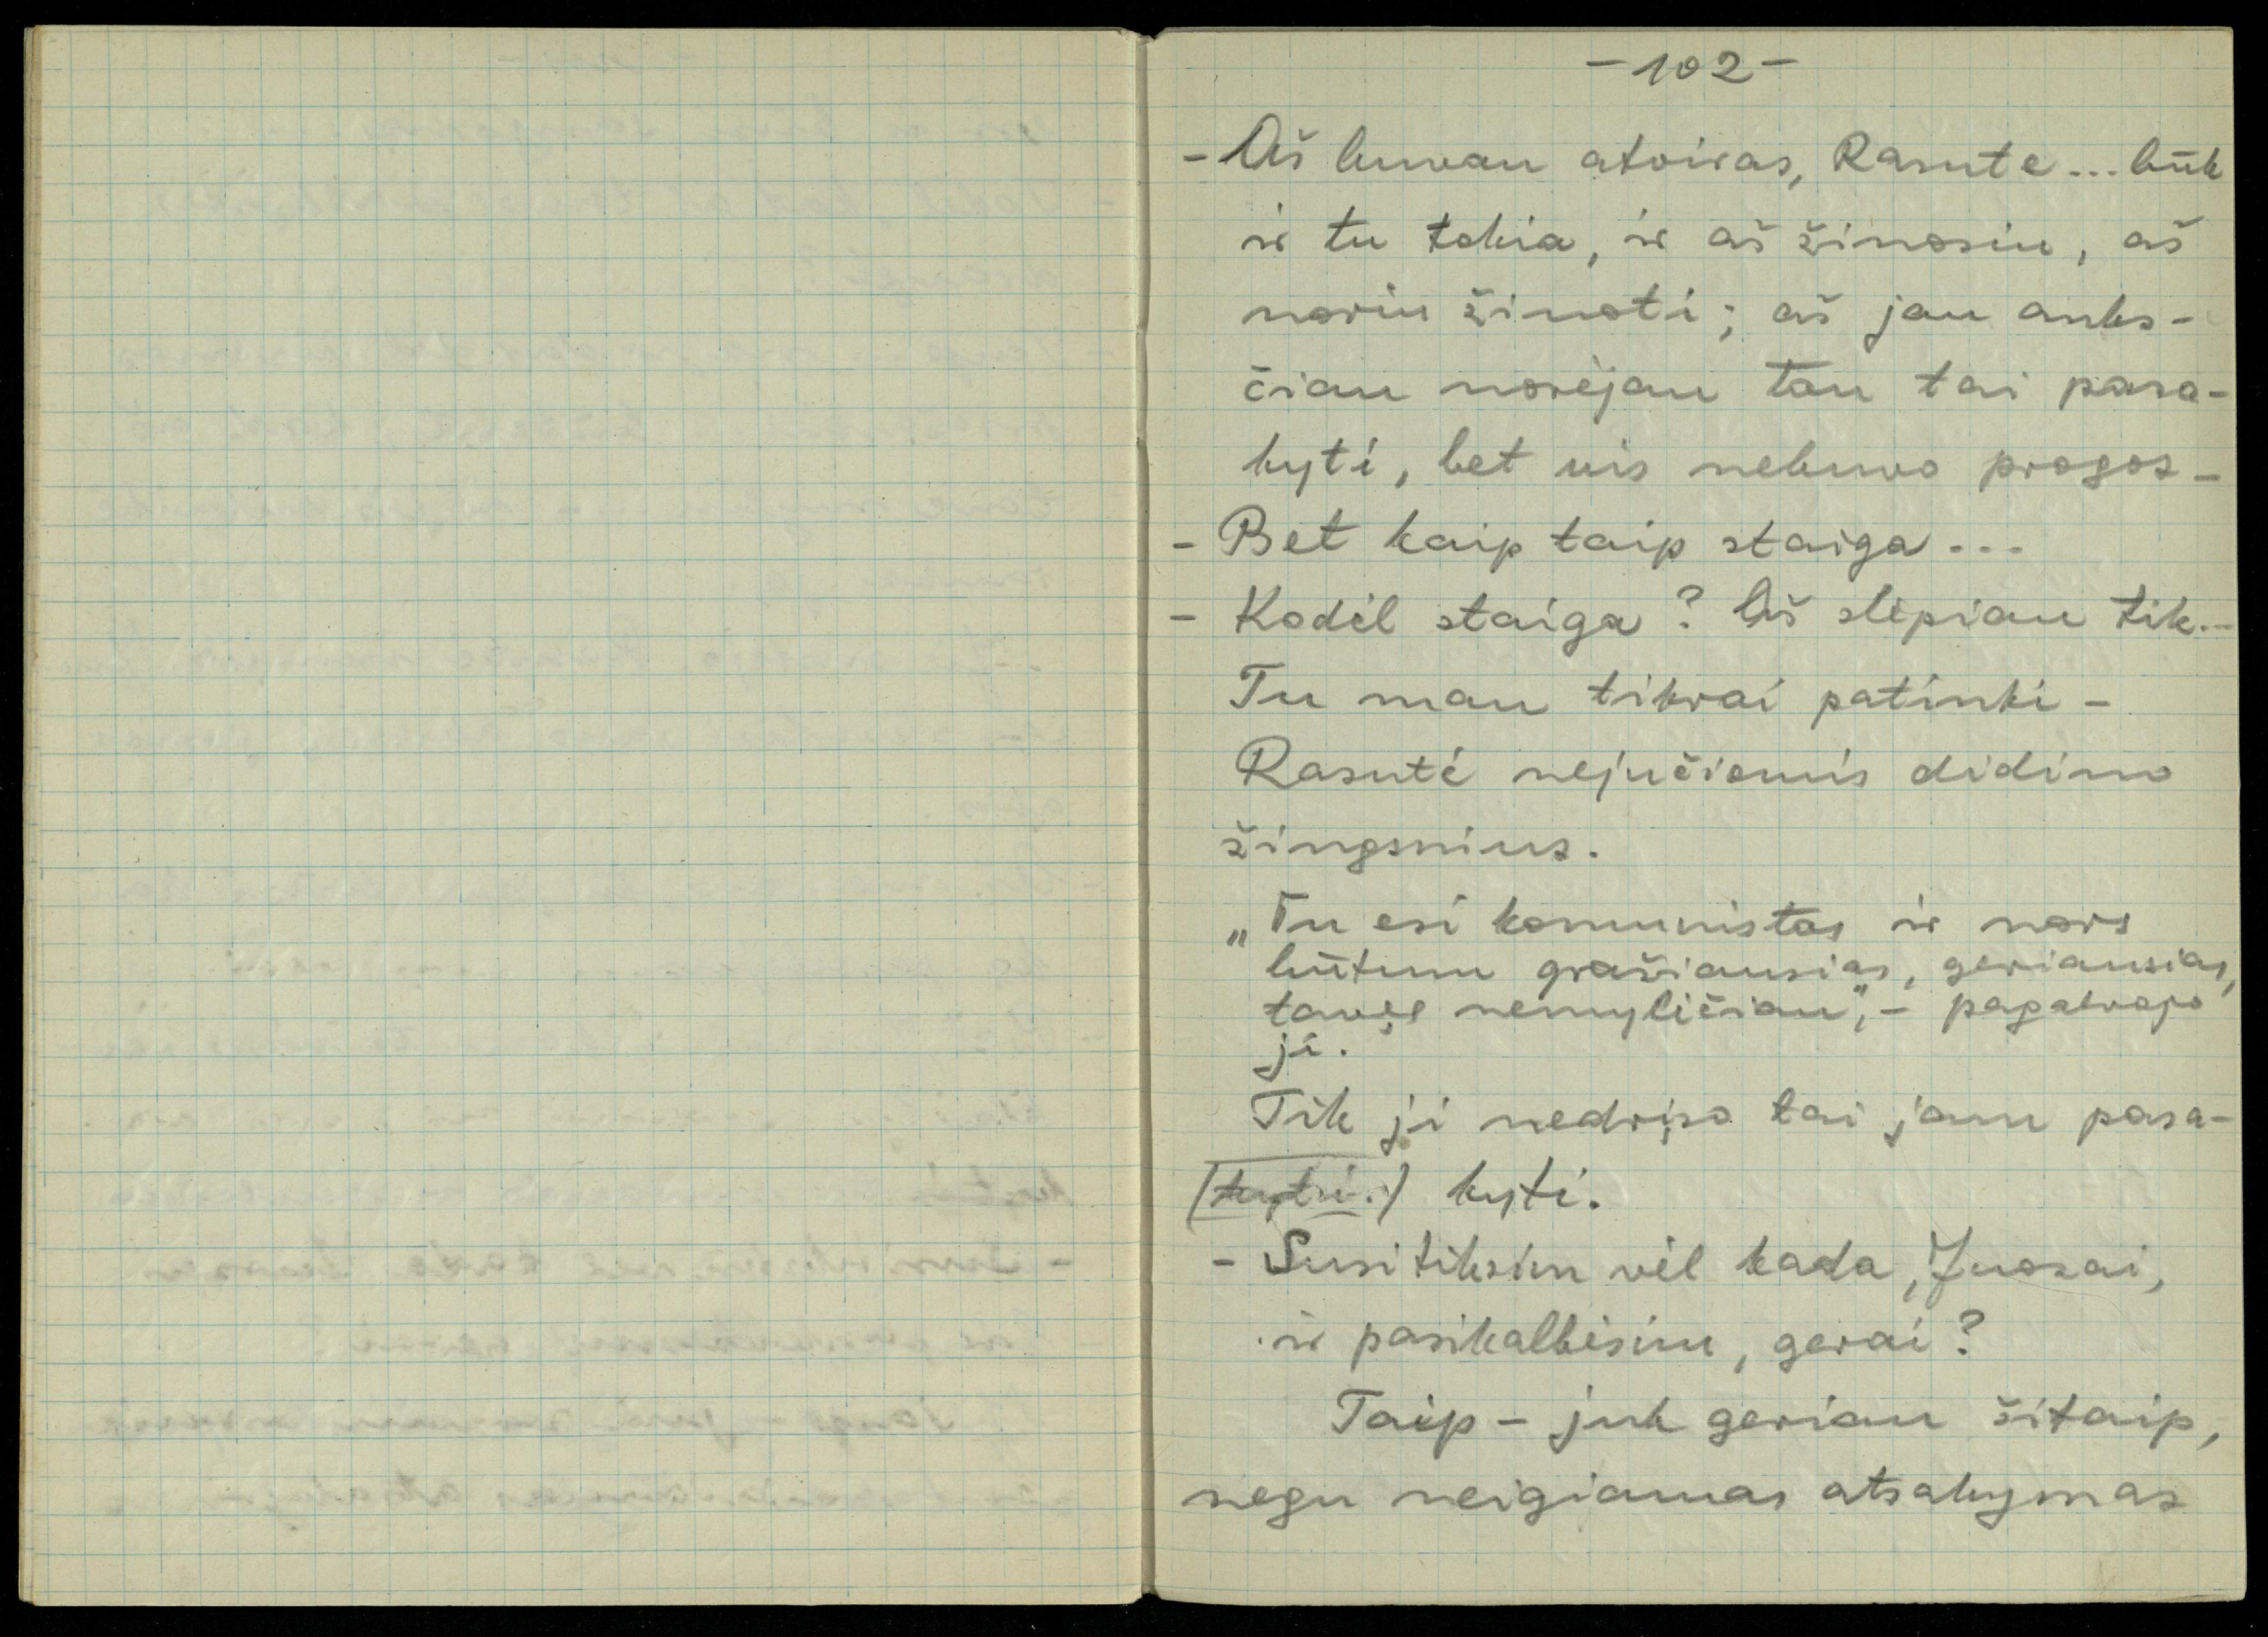 -102-
- Aš buvau atviras, Rasute... būk
ir tu tokia, ir aš žinosiu, aš
noriu žinoti; aš jau anks-
čiau norėjau tau tai pasa-
kyti, bet vis nebuvo progos -
- Bet kaip taip staiga...
- Kodėl staiga? Aš slėpiau tik...
Tu man tikrai patinki -
Rasutė nejučiomis didino
žingsnius.
„Tu esi komunistas ir nors
būtum gražiausias, geriausias,
tavęs nemylėčiau", - pagalvojo
ji.
Tik ji nedrįso tai jam pasa-
(kyti.) kyti.
- Susitiksim vėl kada, Juozai,
ir pasikalbėsim, gerai?
Taip - juk geriau šitaip,
negu neigiamas atsakymas